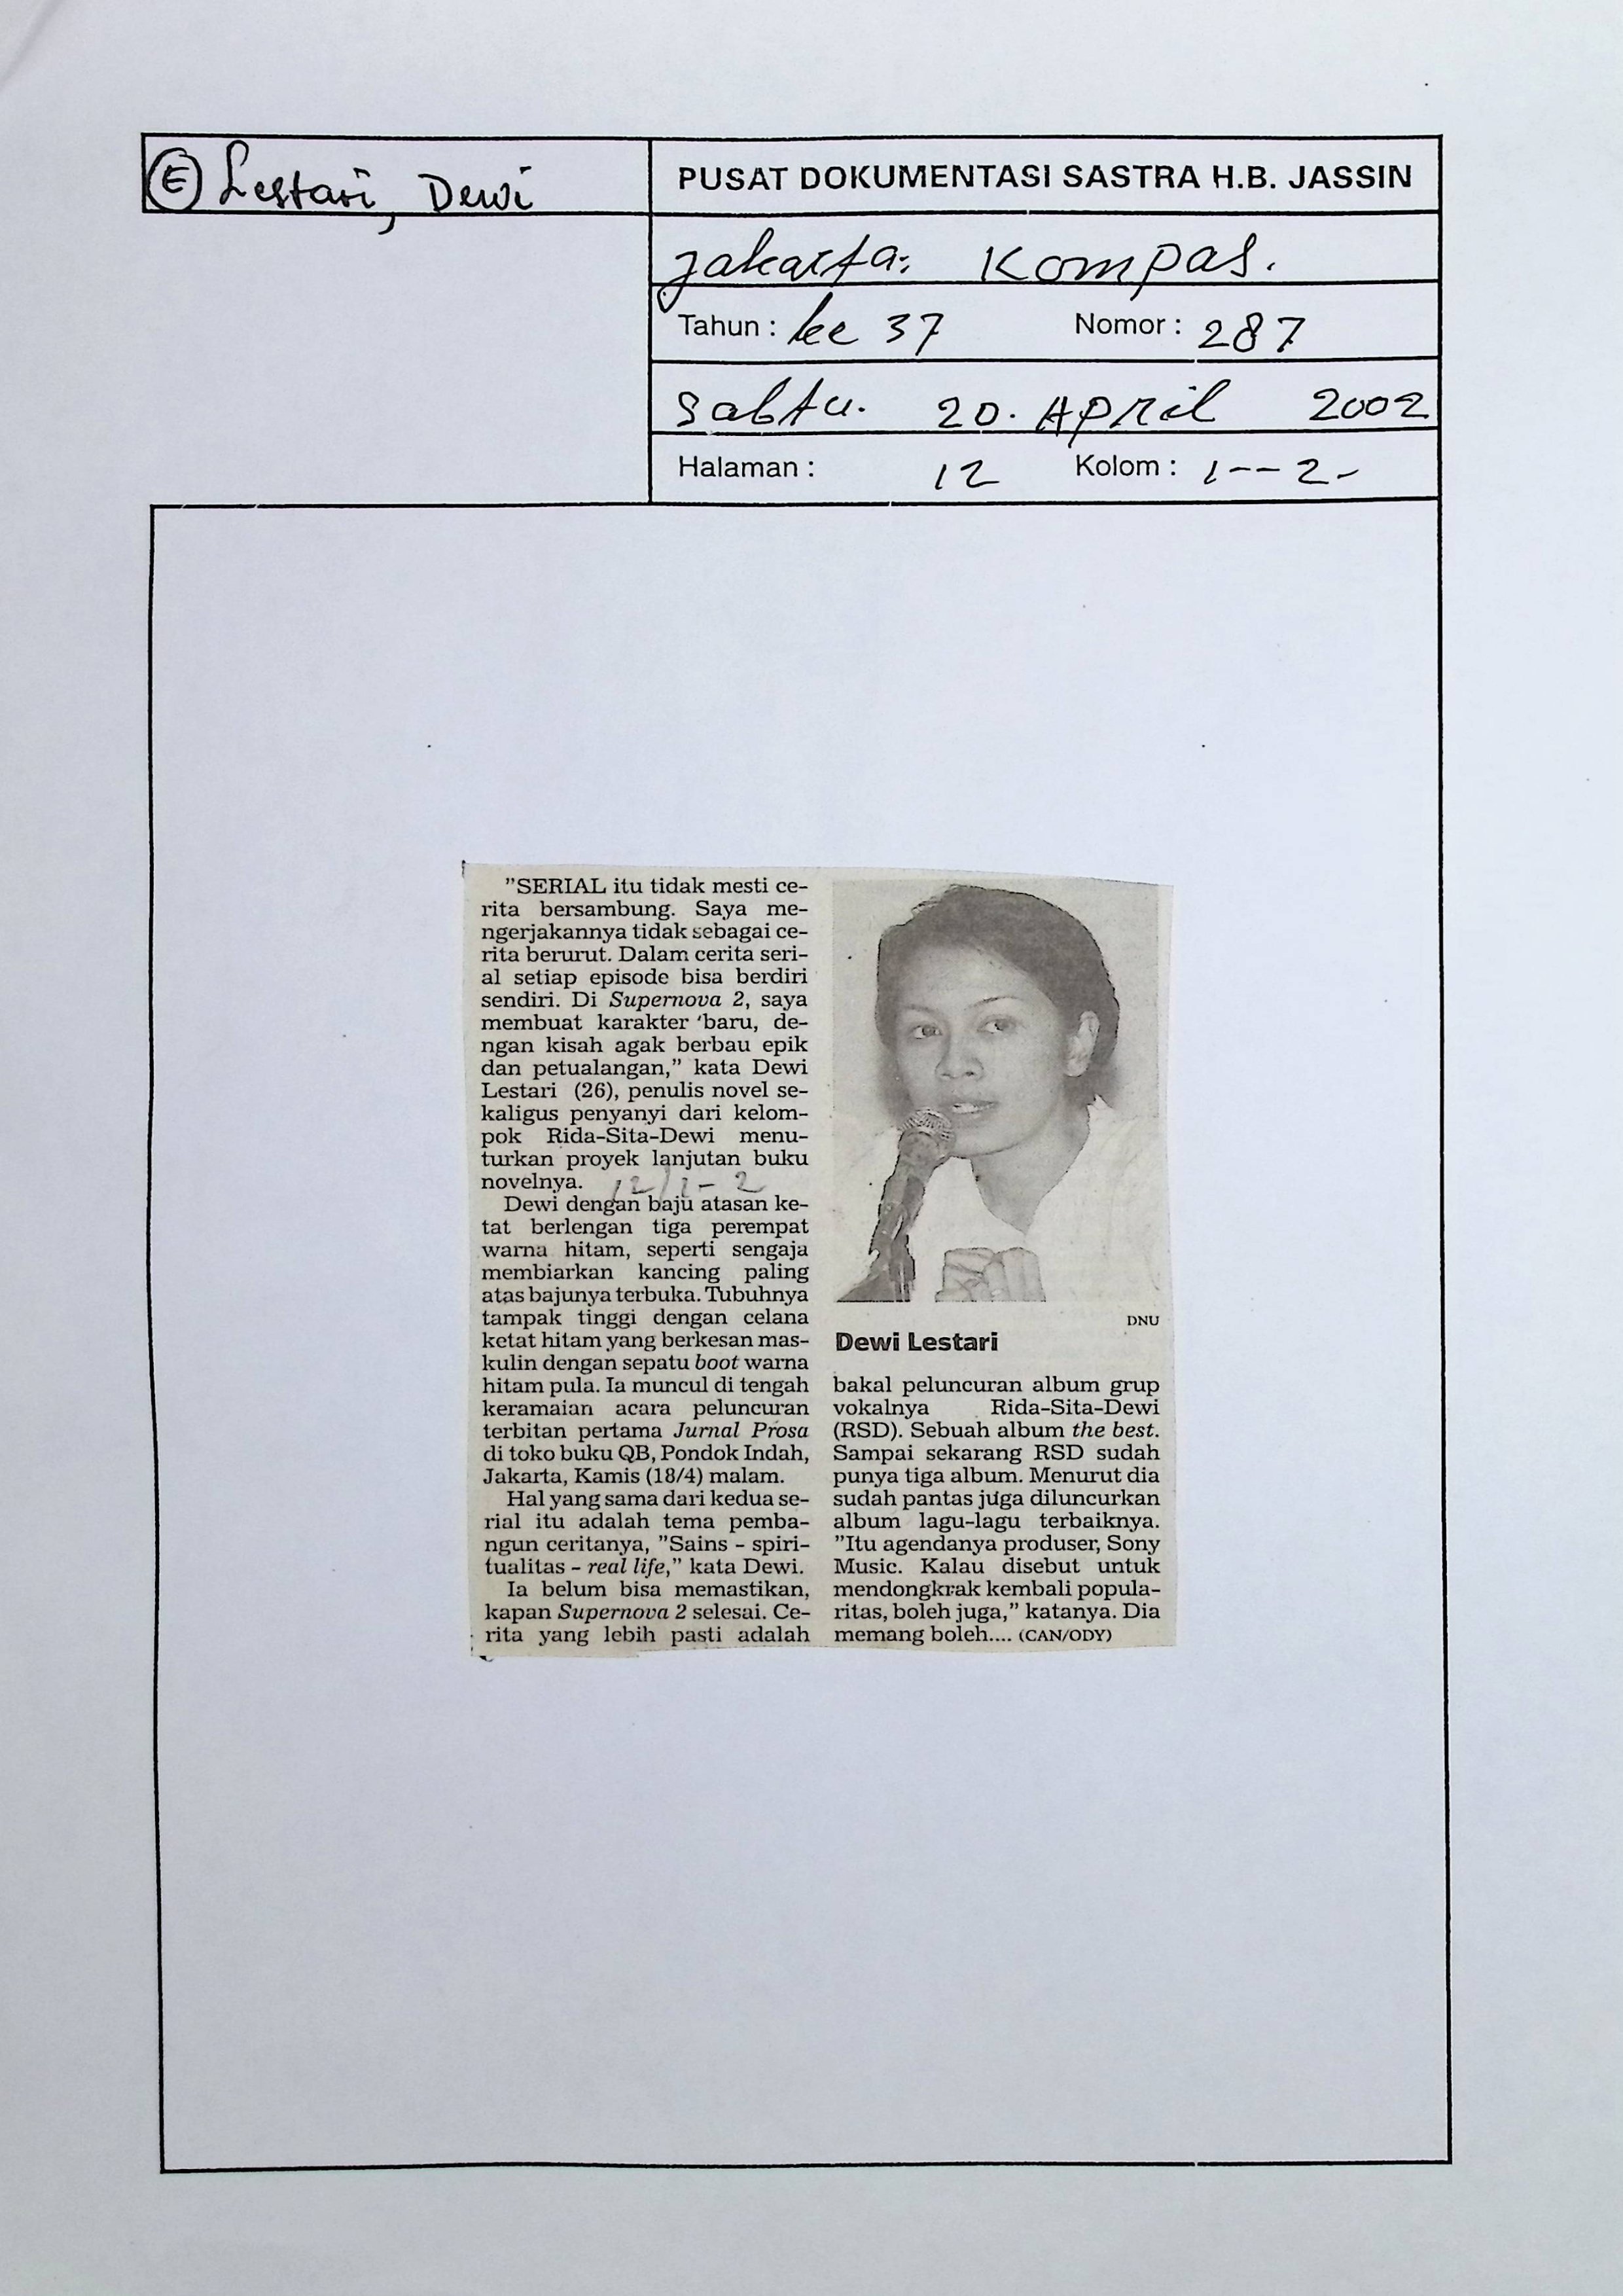 Ⓔ Lestari, Dewi
PUSAT DOKUMENTASI SASTRA H.B. JASSIN
Jakarta: Kompas.
Tahun : ke 37 Nomor : 287
Sabtu. 20. April 2002
Halaman : 12 Kolom : 1--2-
"SERIAL itu tidak mesti ce-
rita bersambung. Saya me-
ngerjakannya tidak sebagai ce-
rita berurut. Dalam cerita seri-
al setiap episode bisa berdiri
sendiri. Di Supernova 2, saya
membuat karakter 'baru, de-
ngan kisah agak berbau epik
dan petualangan," kata Dewi
Lestari (26), penulis novel se-
kaligus penyanyi dari kelom-
pok Rida-Sita-Dewi menu-
turkan proyek lanjutan buku
novelnya.
12/1-2
Dewi dengan baju atasan ke-
tat berlengan tiga perempat
warna hitam, seperti sengaja
membiarkan kancing paling
atas bajunya terbuka. Tubuhnya
tampak tinggi dengan celana
ketat hitam yang berkesan mas-
kulin dengan sepatu boot warna
hitam pula. Ia muncul di tengah
keramaian acara peluncuran
terbitan pertama Jurnal Prosa
di toko buku QB, Pondok Indah,
Jakarta, Kamis (18/4) malam.
Hal yang sama dari kedua se-
rial itu adalah tema pemba-
ngun ceritanya, "Sains - spiri-
tualitas - real life," kata Dewi.
Ia belum bisa memastikan,
kapan Supernova 2 selesai. Ce-
rita yang lebih pasti adalah
DNU
Dewi Lestari
bakal peluncuran album grup
vokalnya Rida-Sita-Dewi
(RSD). Sebuah album the best.
Sampai sekarang RSD sudah
punya tiga album. Menurut dia
sudah pantas juga diluncurkan
album lagu-lagu terbaiknya.
"Itu agendanya produser, Sony
Music. Kalau disebut untuk
mendongkrak kembali popula-
ritas, boleh juga," katanya. Dia
memang boleh.... (CAN/ODY)